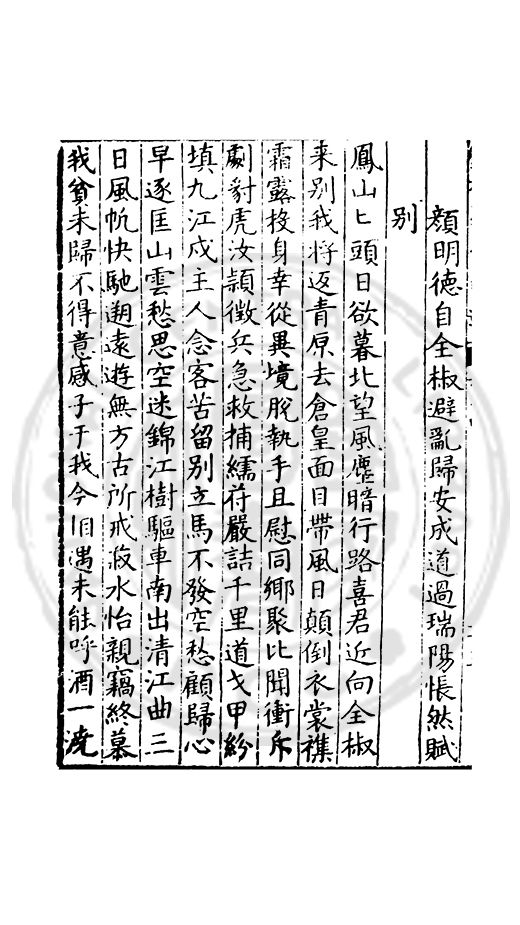 顔明徳自全椒避亂歸安成道過瑞陽悵然賦
别
鳳山匕頭日欲暮北望風塵暗行路喜君近向全椒
来别我将返青原去倉皇面目帶風日顛倒衣裳襍
霜露投身幸從異境脫執手且慰同鄉聚比聞衝斥
劇豺虎汝頴徴兵急救捕繻符嚴詰千里道戈甲紛
填九江戍主人念客苦留别立馬不發空愁顧歸心
早逐匡山雲愁思空迷錦江樹驅車南出清江曲三
日風帆快馳遡逺遊無方古所戒菽水怡親竊終慕
我貧未歸不得意感子于我今旧遇未能呼酒一澆